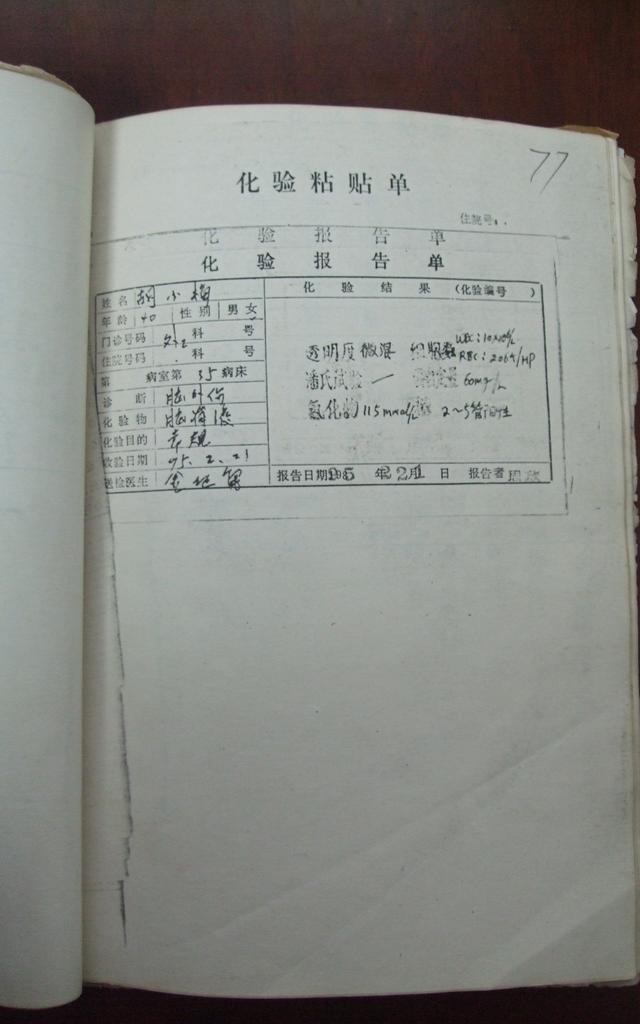 77
化验粘贴单
住院号：
化验报告单
化验报告单
姓名 胡小梅
年龄 40 性别 男女
门诊号码 科 号
住院号码 科 号
第 病室第 35 病床
诊断 脑外伤
化验物 脑脊液
化验目的 常规
收验日期 95.2.21
送检医生
化验结果 (化验编号 )
透明度微混 细胞数 WBC:
RBC: /HP
潘氏试验 — 60mg/L
氯化物 115mmol/L 糖 2～5管阳性
报告日期 年 月 日 报告者